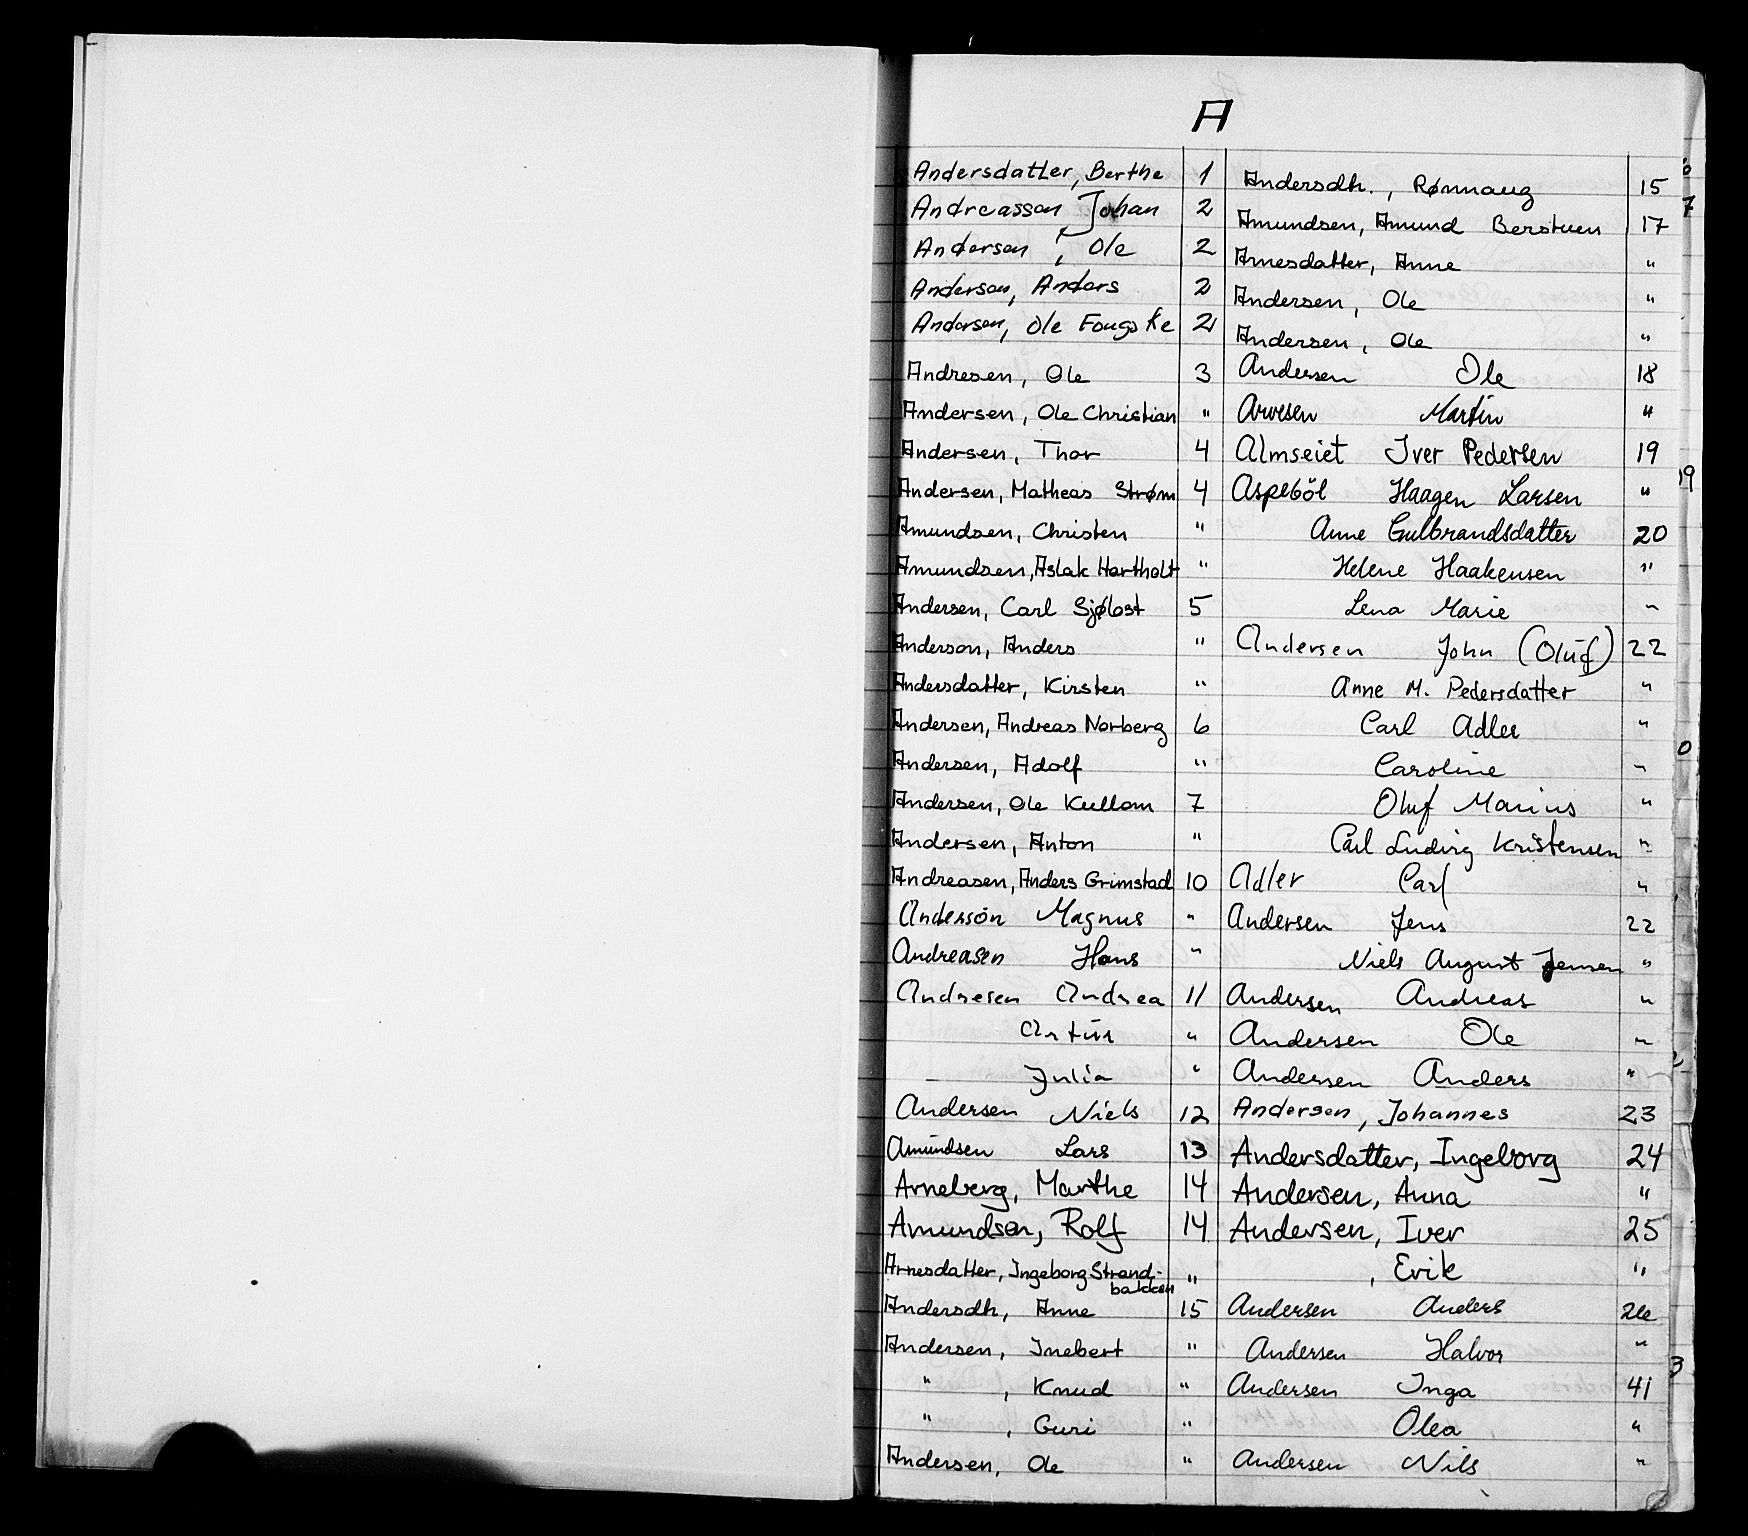 A
Andersdatter, Berthe 1
Andreasson Johan 2
Andersen, Ole 2
Anderson, Anders 2
Andersen, Ole Fougske 2
Andresen, Ole 3
Andersen, Ole Christian "
Andersen, Thor 4
Andersen, Matheas Strøm 4
Amundsen, Christen "
Amundsen, Aslak Hartholt "
Andersen, Carl Sjøbost 5
Anderson, Anders "
Andersdatter, Kirsten "
Andersen, Andreas Norberg 6
Andersen, Adolf "
Andersen, Ole Kullom 7
Andersen, Anton "
Andreasen, Anders Grimstad 10
Anderson Magnus "
Andreasen Hans "
Andresen Andrea 11
Artur "
Julia "
Andersen Niels 12
Amundsen Lars 13
Arneberg, Marthe 14
Amundsen, Rolf 14
Arnesdatter, Ingeborg Strand-
bakken "
Andersdtr, Anne 15
Andersen, Inebert "
" , Knud "
" , Guri "
Andersen, Ole "
Andersdtr., Rønnaug 15
Amundsen, Amund Berstuen 17
Arnesdatter, Anne "
Andersen, Ole "
Andersen, Ole "
Andersen Ole 18
Arvesen Martin "
Almseiet Iver Pedersen 19
Aspeböl Haagen Larsen "
Anne Gulbrandsdatter 20
Helene Haakensen "
Lena Marie "
Andersen John (Oluf) 22
Anne M. Pedersdatter "
Carl Adler "
Caroline "
Oluf Marius "
Carl Ludvig Kristensen "
Adler Carl "
Andersen Jens 22
Niels August Jensen "
Andersen Andreas "
Andersen Ole "
Andersen Anders "
Andersen, Johannes 23
Andersdatter, Ingeborg 24
Andersen, Anna "
Andersen, Iver 25
, Erik "
Andersen Anders 26
Andersen Halvor "
Andersen Inga 41
Olea "
Andersen Nils "